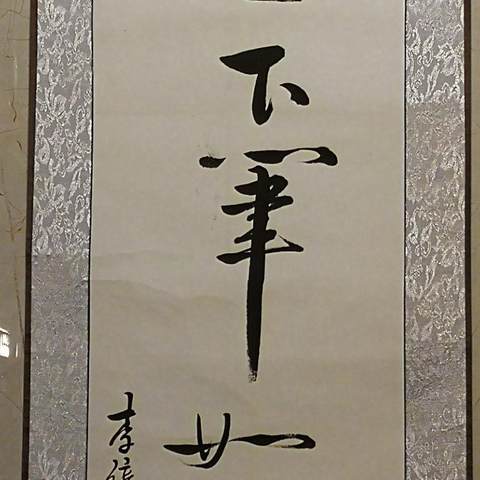 下筆如
李